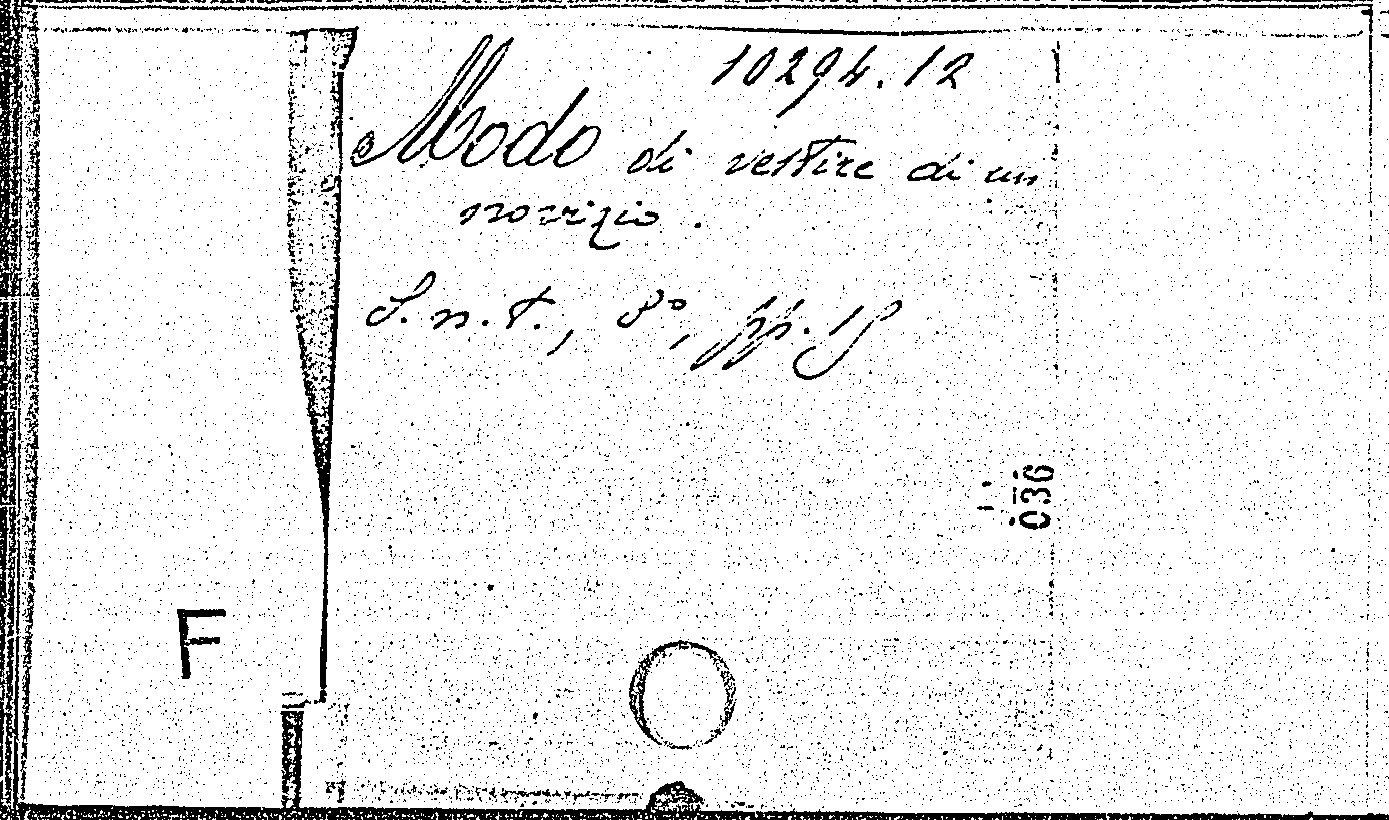 10294.12
Modo di vestire di un
novizio.
S.n.t., 8°, pp. 15
036
F